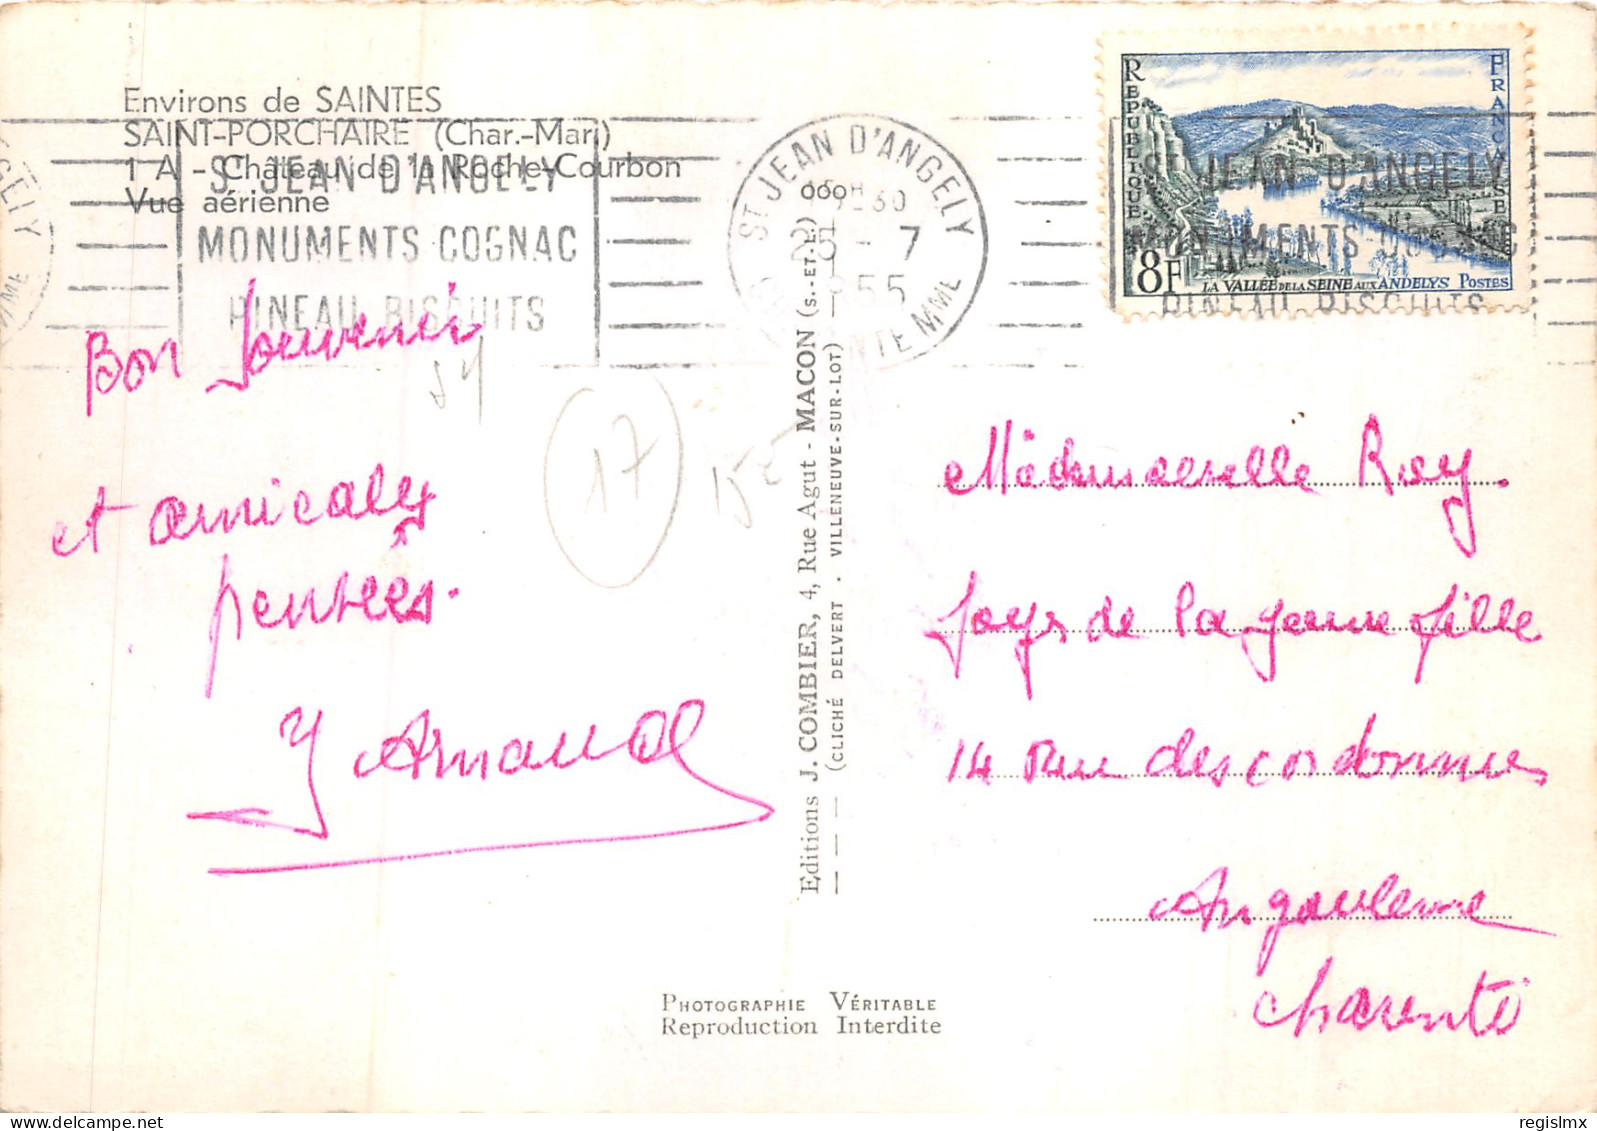 Environs de SAINTES
SAINT-PORCHAIRE (Char.-Mar.)
1 A - Château de la Roche-Courbon
Vue aérienne
ST JEAN D'ANGELY
MONUMENTS COGNAC
PINEAU BISCUITS
ST JEAN D'ANGELY
25 - 7
1955
CHARENTE MME
RÉPUBLIQUE FRANÇAISE
8F
LA VALLÉE DE LA SEINE AUX ANDELYS POSTES
ST JEAN D'ANGELY
MONUMENTS COGNAC
PINEAU BISCUITS
Bon Souvenir
et amicales
pensées.
Y Arnaud
17
15€
Editions J. COMBIER, 4, Rue Agut - MACON (S.-ET-L.)
(CLICHÉ DELVERT - VILLENEUVE-SUR-LOT)
Mademoiselle Roy.
foyer de la jeune fille
14 Rue des cordonniers
Angoulème
charente
PHOTOGRAPHIE VÉRITABLE
Reproduction Interdite
regislmx